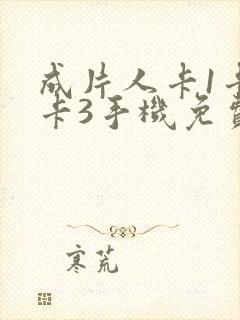 成片人卡1卡
卡3手機免費
寒荒